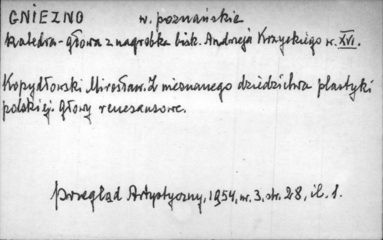 GNIEZNO w. poznańskie
Katedra - głowa z nagrobka bisk. Andrzeja Krzyckiego w. XVI.
Kopydłowski Mirosław. Z nieznanego dziedzictwa plastyki
polskiej. Głowy renesansowe.
Przegląd Artystyczny, 1954, nr. 3, str. 28, il. 1.